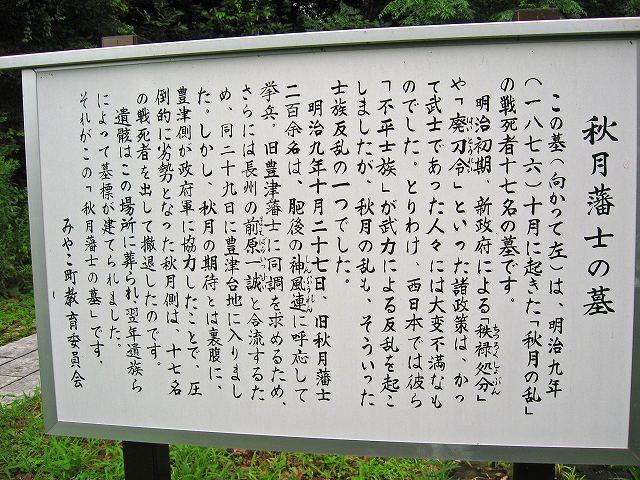 秋月藩士の墓
この墓(向かって左)は、明治九年
(一八七六)十月に起きた「秋月の乱」
の戦死者十七名の墓です。
明治初期、新政府による「秩禄処分」
ちつろくしょぶん
や「廃刀令」といった諸政策は、かつ
はいとうれい
て武士であった人々には大変不満なも
のでした。とりわけ、西日本では彼ら
「不平士族」が武力による反乱を起こ
しましたが、秋月の乱も、そういった
士族反乱の一つでした。
明治九年十月二十七日、旧秋月藩士
二百余名は、肥後の神風連に呼応して
じんぷうれん
挙兵、旧豊津藩士に同調を求めるため、
さらには長州の前原一誠と合流するた
め、同二十九日に豊津台地に入りまし
た。しかし、秋月の期待とは裏腹に、
豊津側が政府軍に協力したことで、圧
倒的に劣勢となった秋月側は、十七名
の戦死者を出して撤退したのです。
遺骸はこの場所に葬られ、翌年遺族ら
によって墓標が建てられました。
それがこの「秋月藩士の墓」です。
みやこ町教育委員会